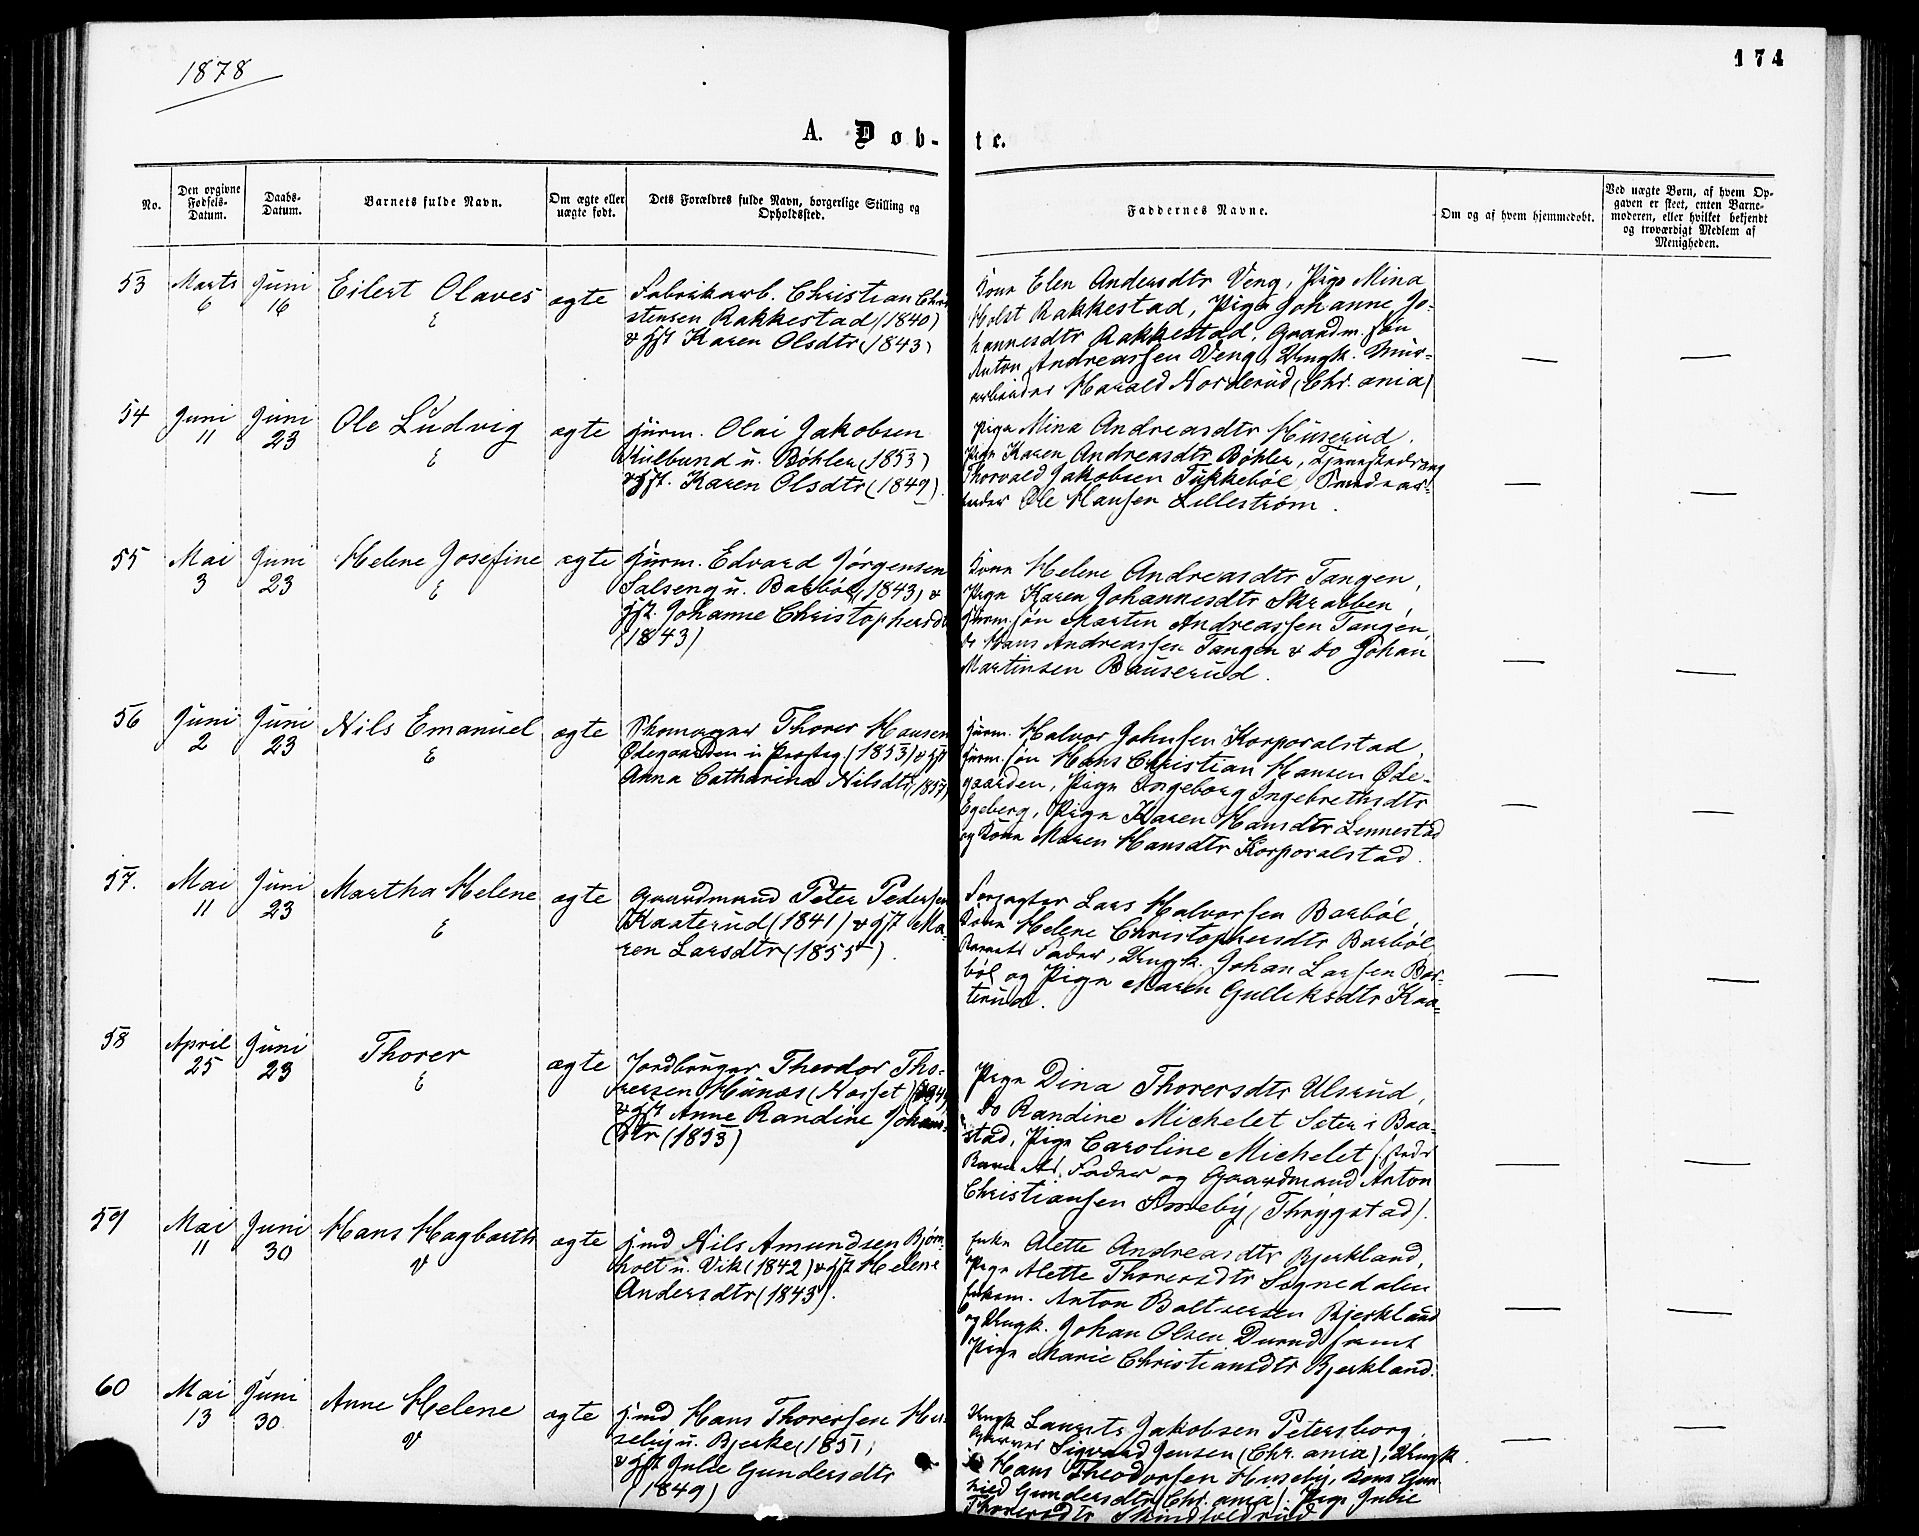 1878
174
A. Døb-
te.
No.
Den opgivne Fødsels-Datum.
Daabs-Datum.
Barnets fulde Navn.
Om ægte eller uægte født.
Dets Forældres fulde Navn, borgerlige Stilling og Opholdssted.
Faddernes Navne.
Om og af hvem hjemmedøbt.
Ved uægte Børn, af hvem Opgaven er skeet, enten Barnemoderen, eller hvilket bekjendt og troværdigt Medlem af Menigheden.
53
Marts 6
Juni 16
Eilert Olaves
E
ægte
Fabrikarb. Christian Chri-
stensen Rakkestad (1840)
& Hst Karen Olsdtr (1843)
Kone Elen Andersdtr Veng, Pige Mina
Holst Rakkestad, Pige Johanne Jo-
hannesdtr Rakkestad, Gaardm. søn
Anton Andreassen Veng, Ungk. Mur-
arbeider Harald Norderud (Chr.ania)
—
—
54
Juni 11
Juni 23
Ole Ludvig
E
ægte
Husm. Olai Jakobsen
Kulbund u. Bøhler (1853)
& Hst. Karen Olsdtr (1849).
Pige Mina Andreasdtr Huserud,
Pige Karen Andreasdtr Bøhler, Tjenestedreng
Thorvald Jakobsen Tukkebøl, Smedear-
beider Ole Hansen Lillestrøm.
—
—
55
Mai 3
Juni 23
Helene Josefine
E
ægte
Husm. Edvard Jørgensen
Salseng u. Barbøl (1843) &
Hst. Johanne Christophersdtr
(1843)
Kone Helene Andreasdtr Tangen,
Pige Karen Johannesdtr Skrabben,
Husm. søn Martin Andreassen Tangen,
do Hans Andreassen Tangen & do Johan
Martinsen Bauserud.
—
—
56
Juni 2
Juni 23
Nils Emanuel
E
ægte
Skomager Thorer Hansen
Ødegaarden u. Presteg (1853) & Hst
Anna Catharina Nilsdtr (1857)
Husm. Halvor Johnsen Korporalstad,
Husm. søn Hans Christian Hansen Øde-
gaarden, Pige Ingeborg Ingebrethsdtr
Egeberg, Pige Karen Hansdtr Lennestad
og Kone Maren Hansdtr Korporalstad.
—
—
57.
Mai 11
Juni 23
Martha Helene
E
ægte
Gaardmand Peter Pedersen
Kaaterud (1841) & Hst Ma-
ren Larsdtr (1855).
Forpagter Lars Halvorsen Barbøl,
Kone Helene Christophersdtr Barbøl,
Barnets Fader, Ungk. Johan Larsen Bar-
bøl og Pige Maren Gulliksdtr Kaa-
terud.
—
—
58
April 25
Juni 23
Thorer
E
ægte
Jordbruger Theodor Tho-
rersen Hunæs (Nosset)
& Hst Anne Randine Johans-
dtr (1853)
Pige Dina Thorersdtr Ulsrud,
do Randine Michelet Seter i Baa-
stad, Pige Caroline Michelet
Barnets Fader og Gaardmand Anton
Christiansen Smeby (Thrygstad).
—
—
59
Mai 11
Juni 30
Hans Hagbarth
V
ægte
Hmd Nils Amundsen Bjørn-
holt u. Vik (1842) & Hst Helene
Andersdtr (1843).
Enke Alette Andreasdtr Bjerkland,
Pige Alette Thorersdtr Sognedalen
Enkem. Anton Baltzersen Bjerkland
og Ungk. Johan Olsen Durud samt
Pige Marie Christiansdtr Bjerkland.
—
—
60
Mai 13
Juni 30.
Anne Helene
V
ægte
Hmd Hans Thorersen Hu-
seby u. Bjerke (1851)
& Hst Julie Gundersdtr
(1849)
Ungk. Laurits Jakobsen Petersborg,
Sigvard Jensen (Chr.ania), Ungk.
Hans Theodorsen Huseby, Kone Gun-
hild Gundersdtr (Chr.ania), Pige Julie
Thorersdtr
—
—